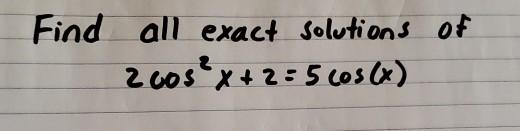 Find all exact solutions of
2 cos²x + 2 = 5 cos(x)